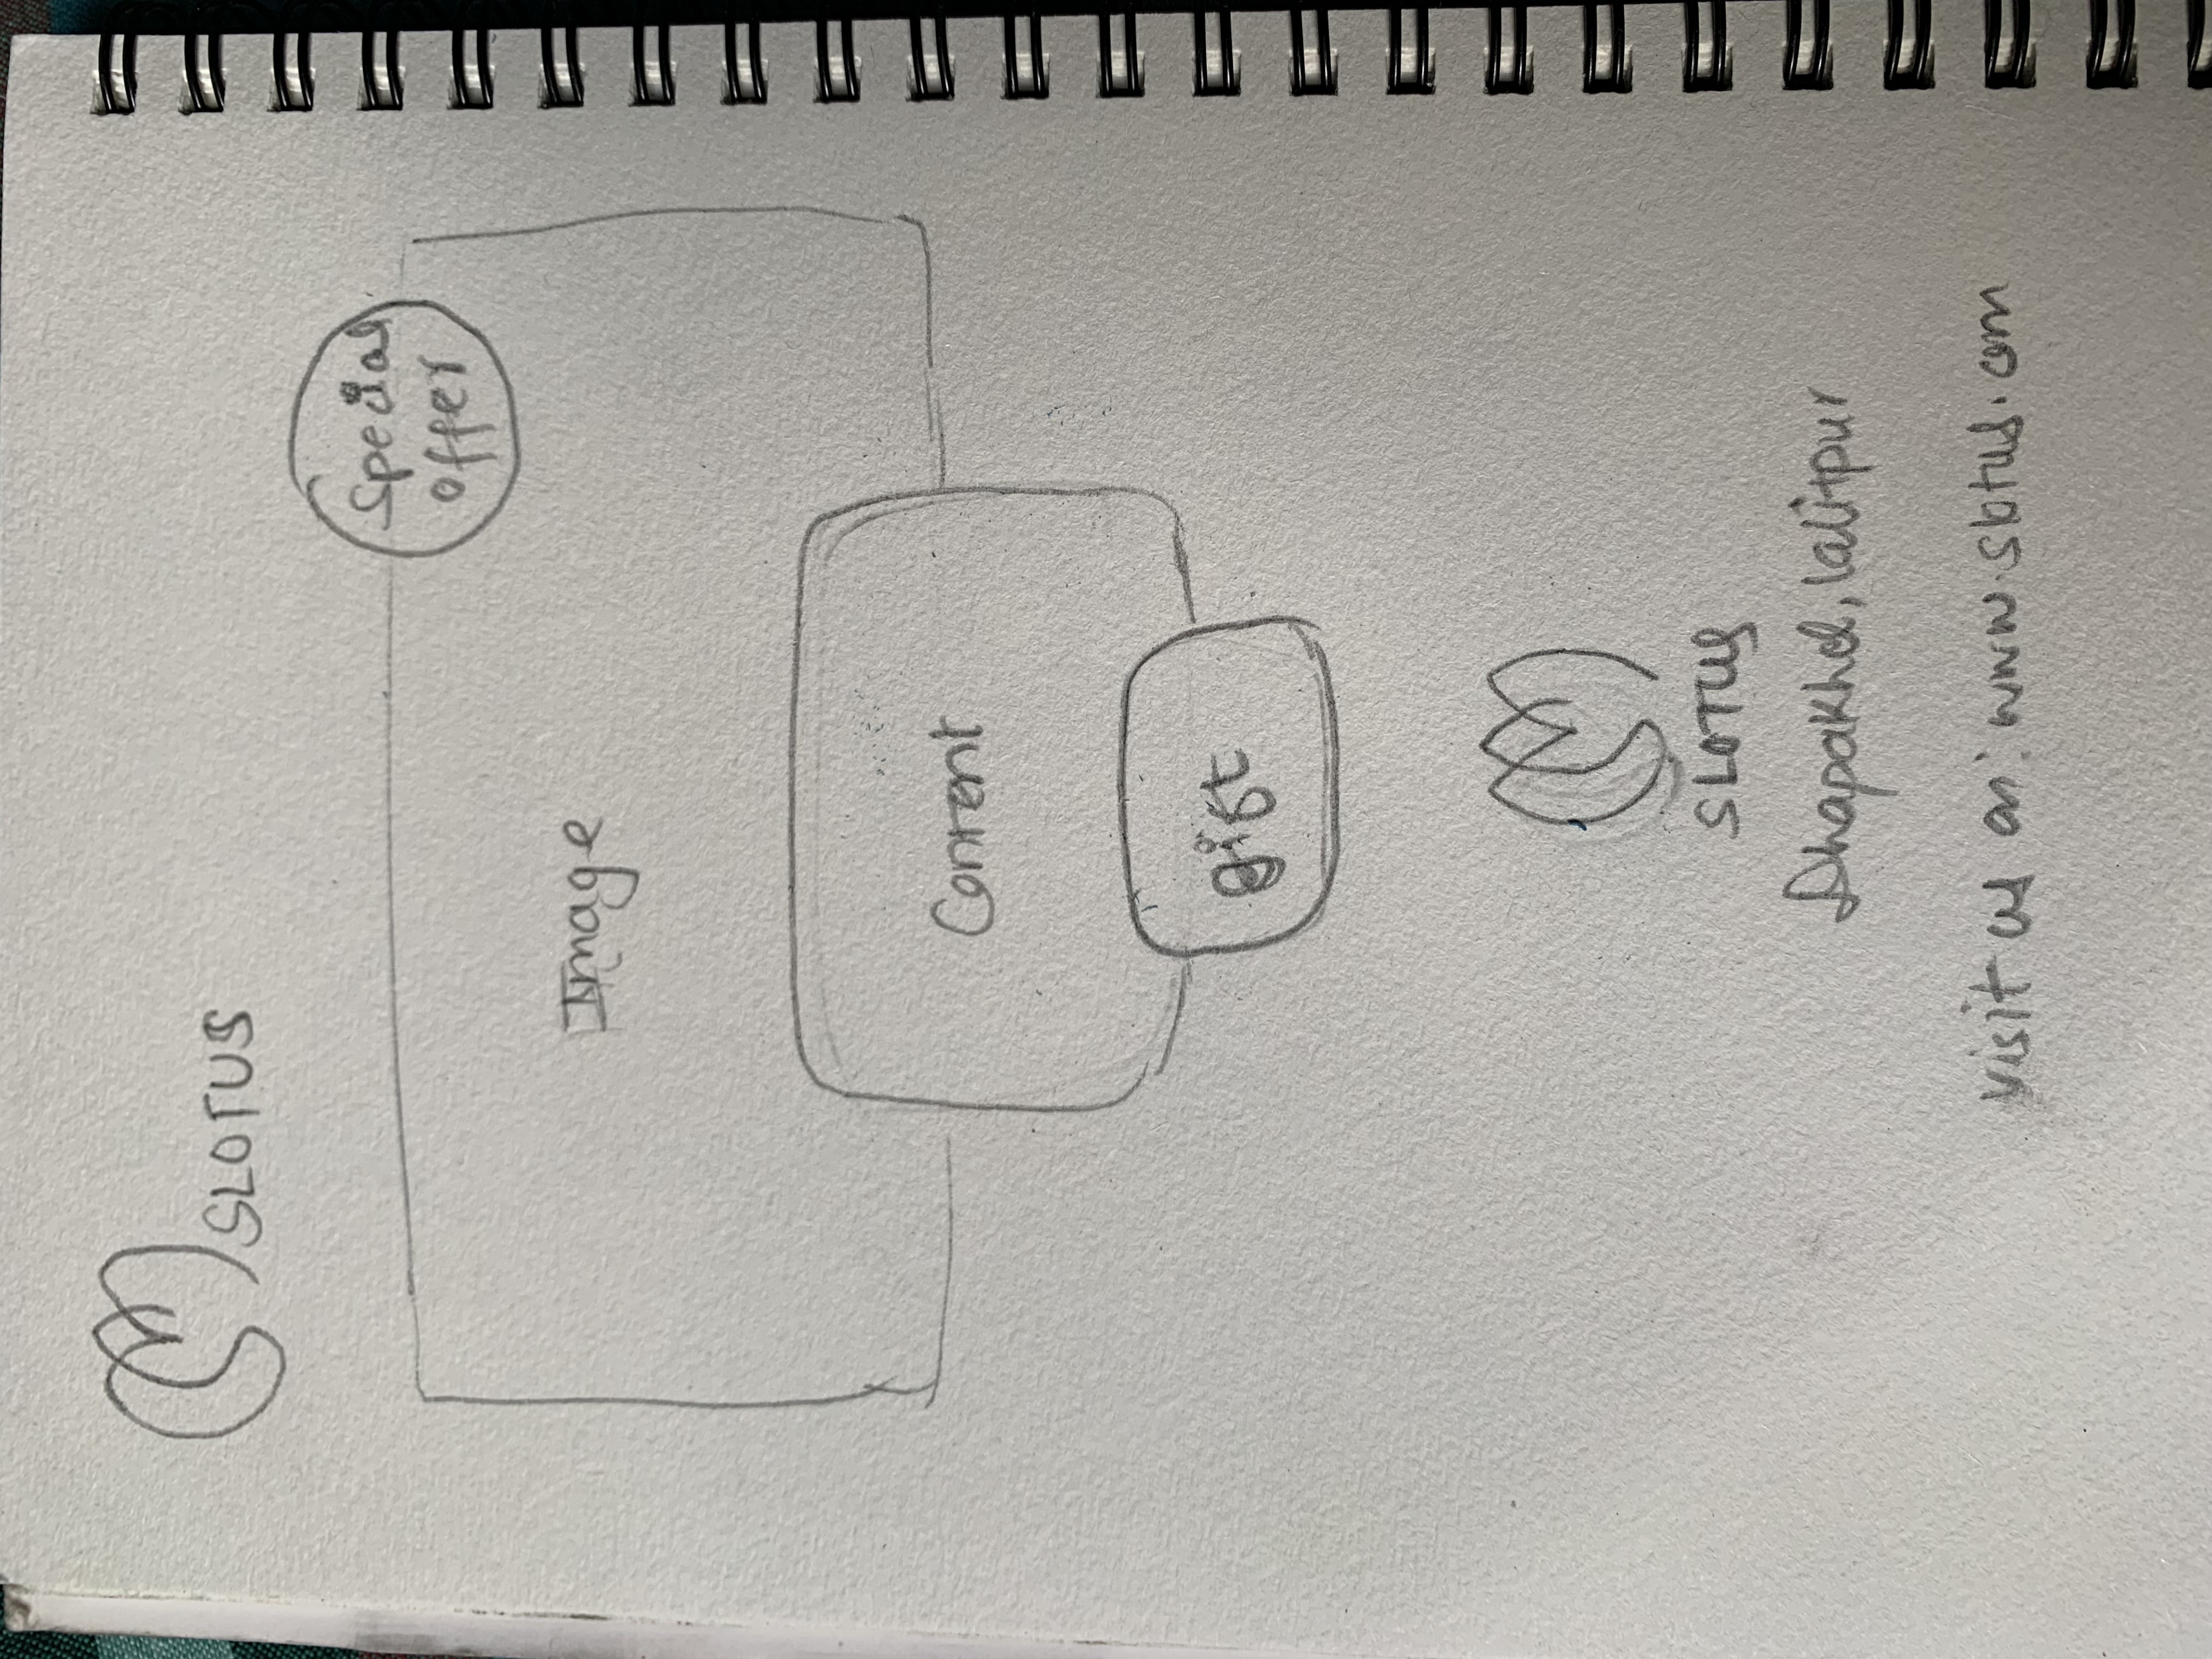 SLOTUS
Special
offer
Image
Content
gift
SLOTUS
Dhapakhel, lalitpur
visit us on: www.slotus.com